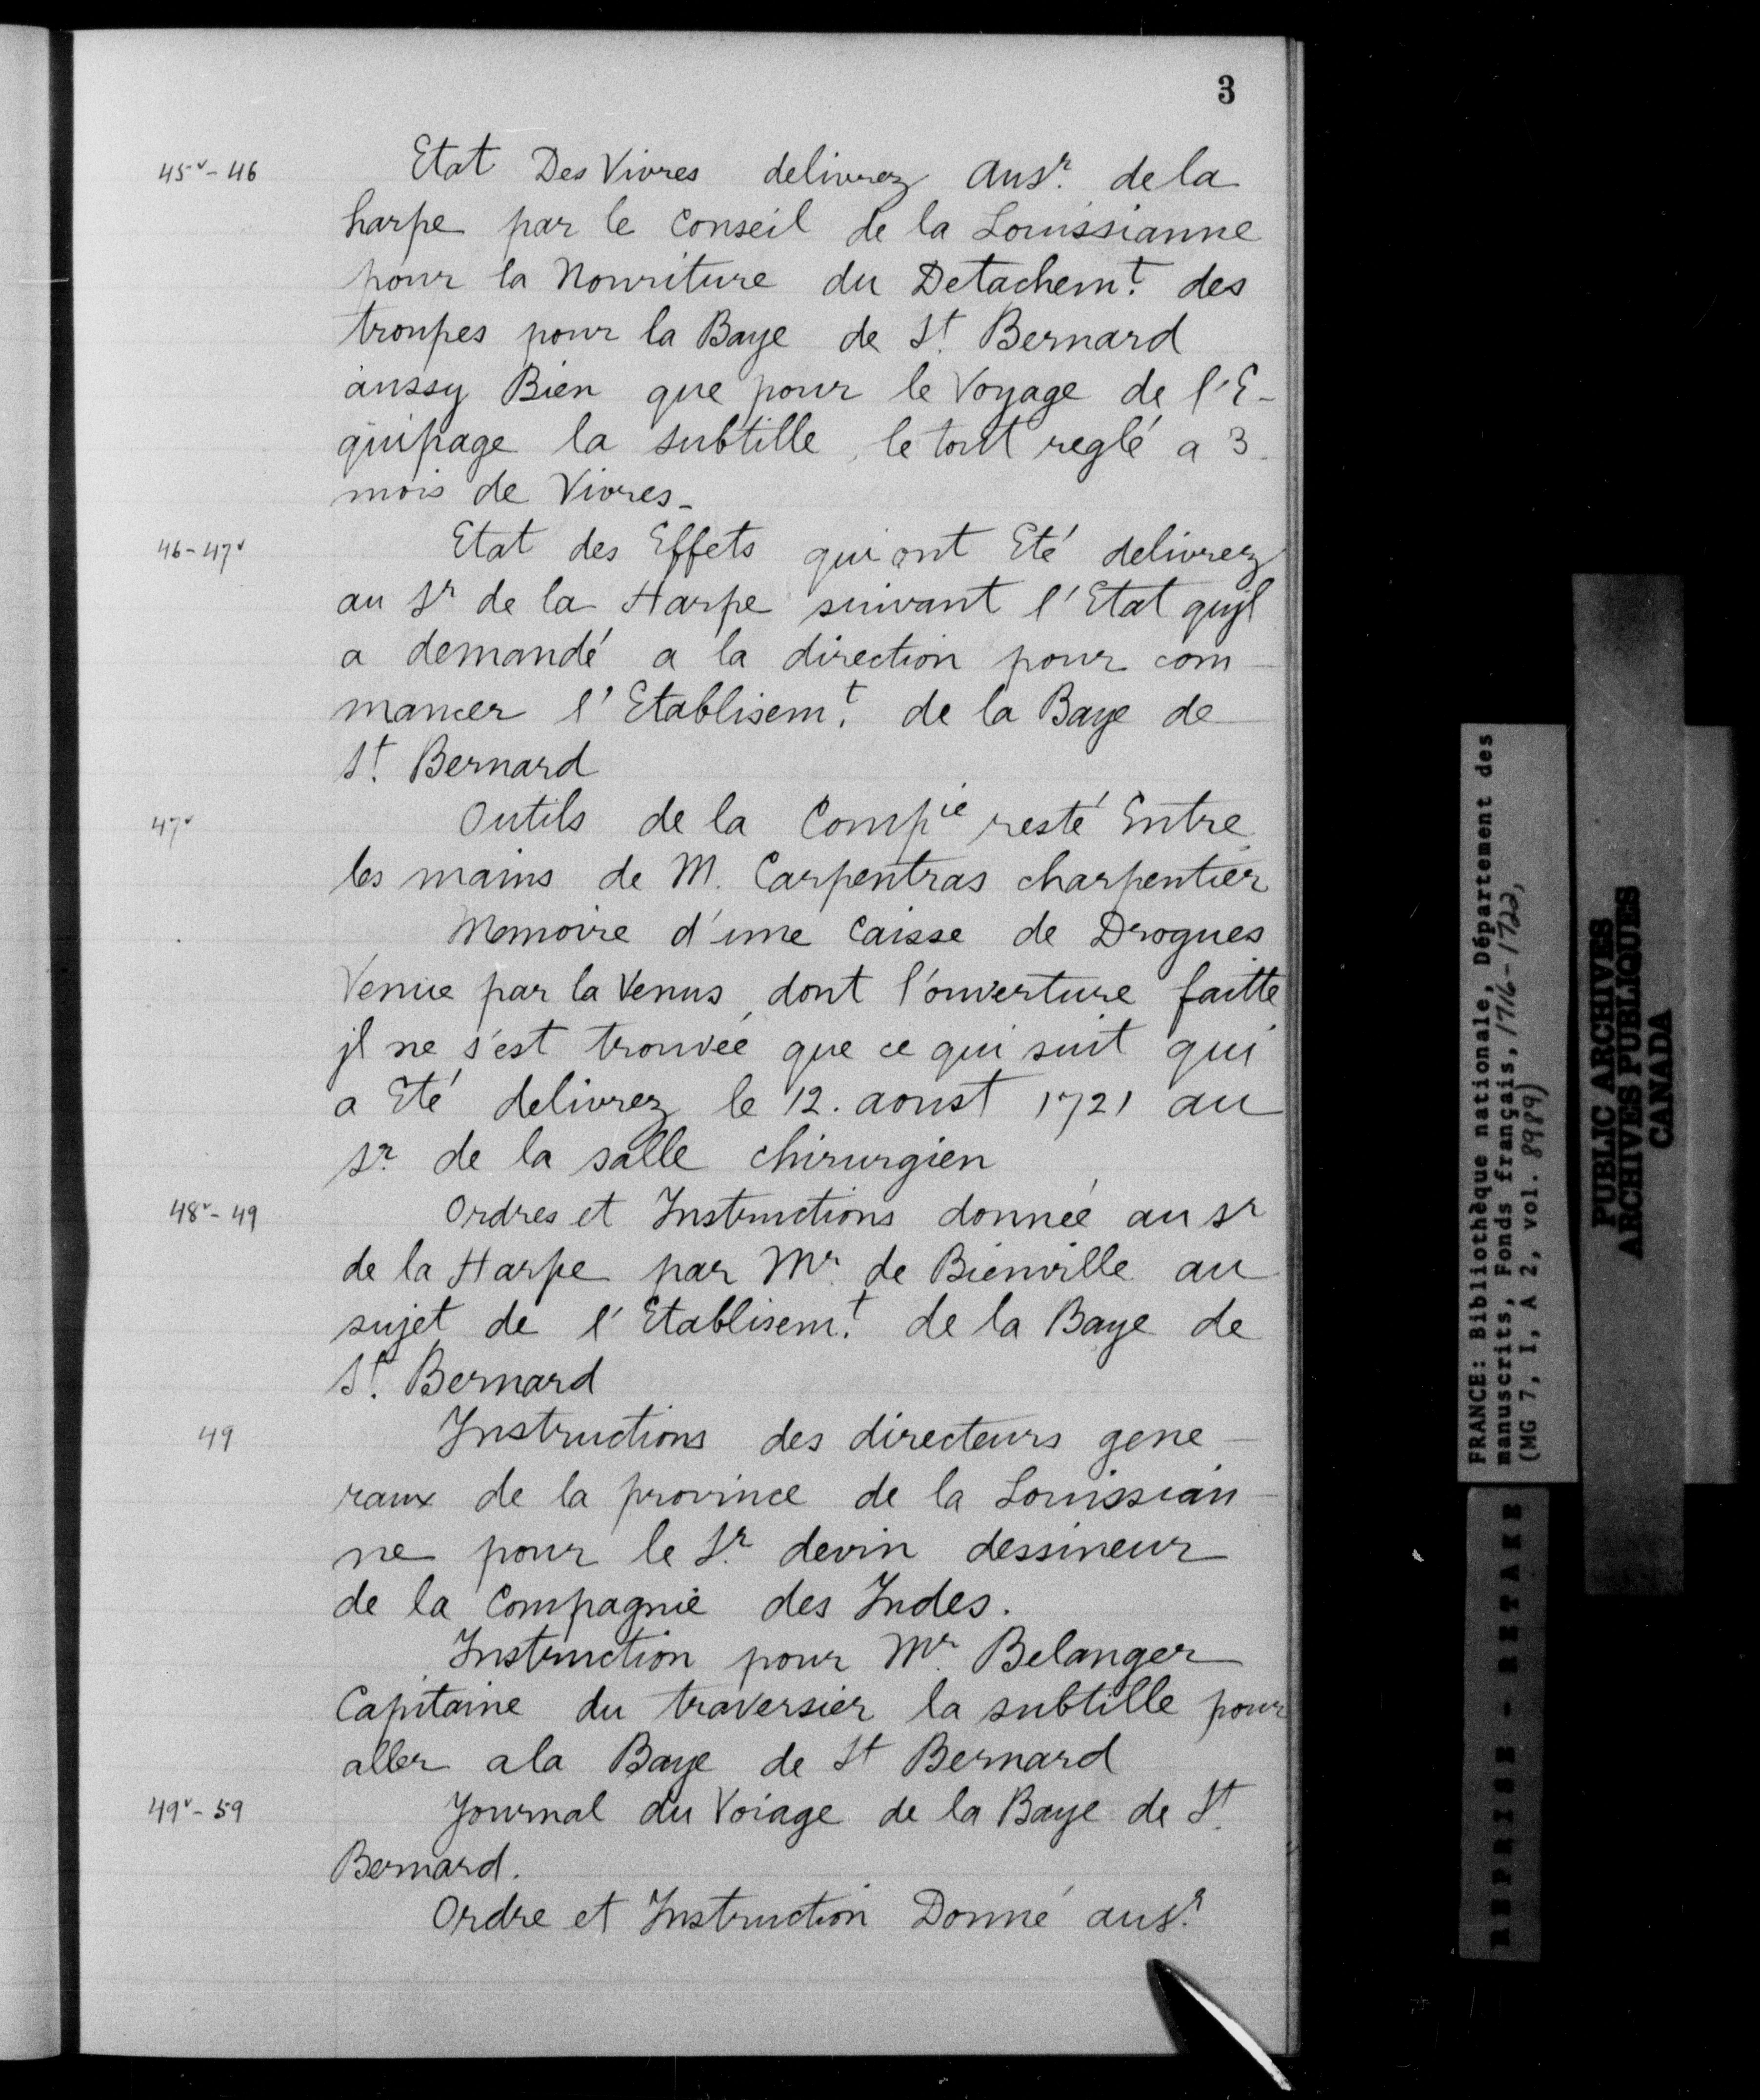 3
45v-46 Etat Des Vivres delivrez ausr. de la
harpe par le Conseil de la Louissianne
pour la Nouriture du Detachemt. des
troupes pour la Baye de St. Bernard
aussy Bien que pour le Voyage de l'E-
quipage la subtille, le tout reglé a 3
mois de Vivres_
46-47v Etat des Effets qui ont Eté delivrez
au Sr de la Harpe suivant l'Etat qujl
a demandé a la direction pour com-
mancer l'Etablisemt. de la Baye de
St. Bernard
47v Outils de la Compie resté Entre
les mains de M. Carpentras charpentier
Memoire d'une Caisse de Drogues
Venue par la Venus, dont l'ouverture faitte
jl ne s'est trouvée que ce qui suit qui
a Eté delivrez le 12. aoust 1721 au
sr. de la salle chirurgien
48v-49 Ordres et Instructions donnée au sr
de la Harpe par Mr. de Bienville au
sujet de l'Etablisemt. de la Baye de
St. Bernard
49 Instructions des directeurs gene-
raux de la province de la Louissian-
ne pour le Sr. devin dessineur
de la Compagnie des Indes.
Instruction pour Mr. Belanger
Capitaine du traversier la subtille pour
aller ala Baye de St Bernard
49v-59 Journal du Voiage de la Baye de St.
Bernard.
Ordre et Instruction Donné ausr.
FRANCE: Bibliothèque nationale, Département des
manuscrits, Fonds français, 1716-1722,
(MG 7, I, A 2, vol. 8989)
PUBLIC ARCHIVES
ARCHIVES PUBLIQUES
CANADA
REPRISE - RETAKE